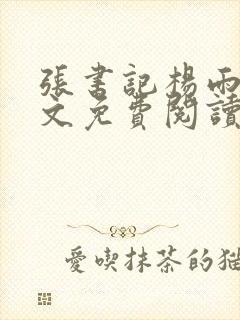 張書記楊雨
文免費閱讀
愛喫抹茶的貓